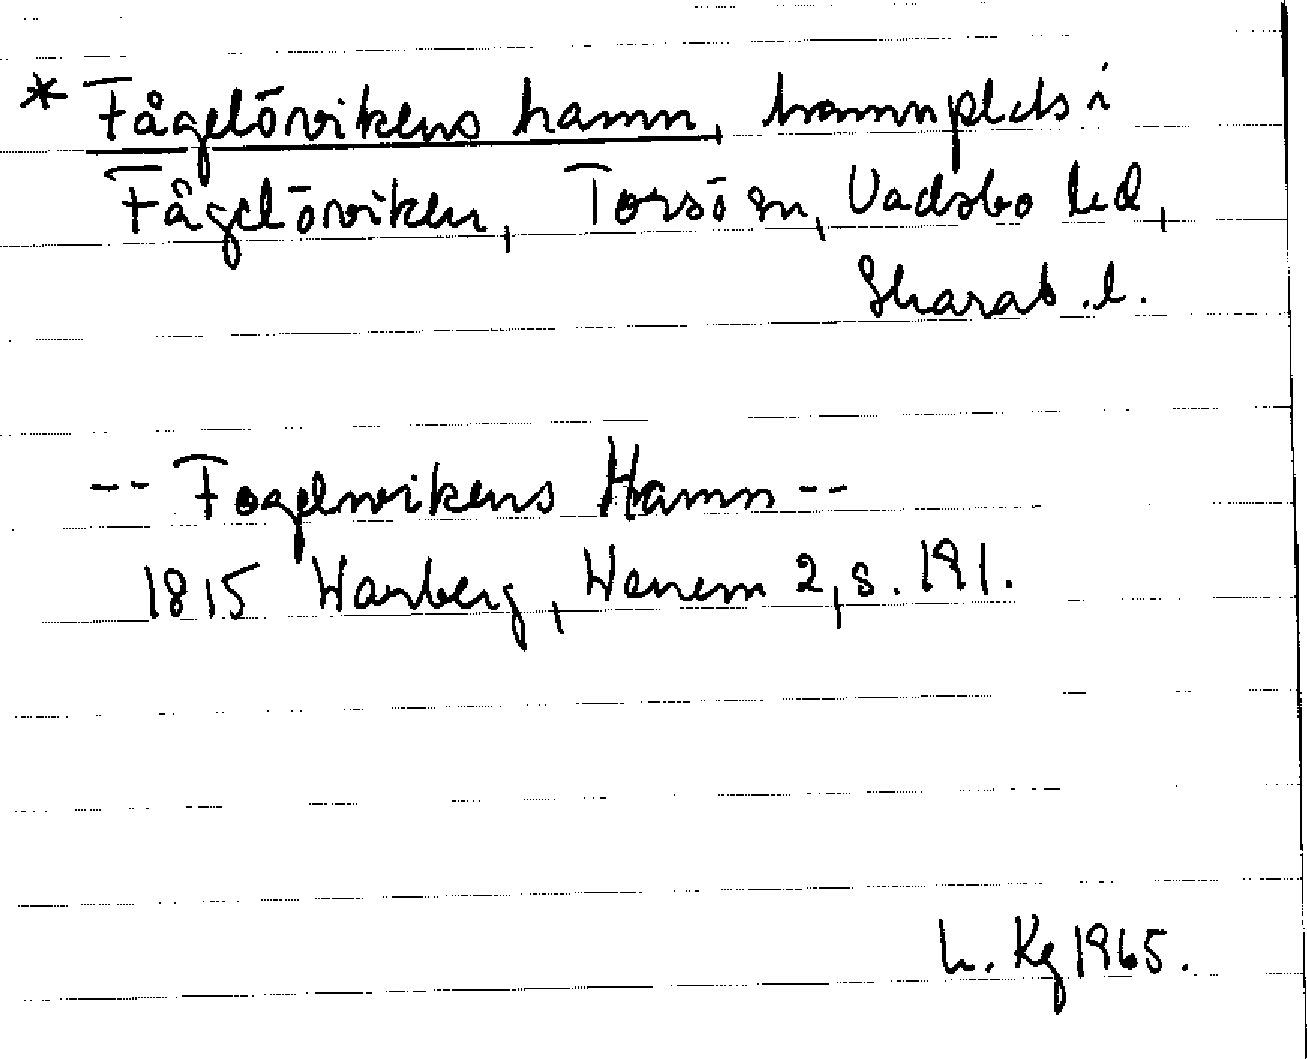 * Fågelövikens hamn, hamnplats i
Fågelöviken, Torsö sn, Vadsbo hd,
Skarab. l.
-- Fogelnvikens Hamn --
1815 Warberg, Wenern 2, s. 191.
h. Kg 1965.